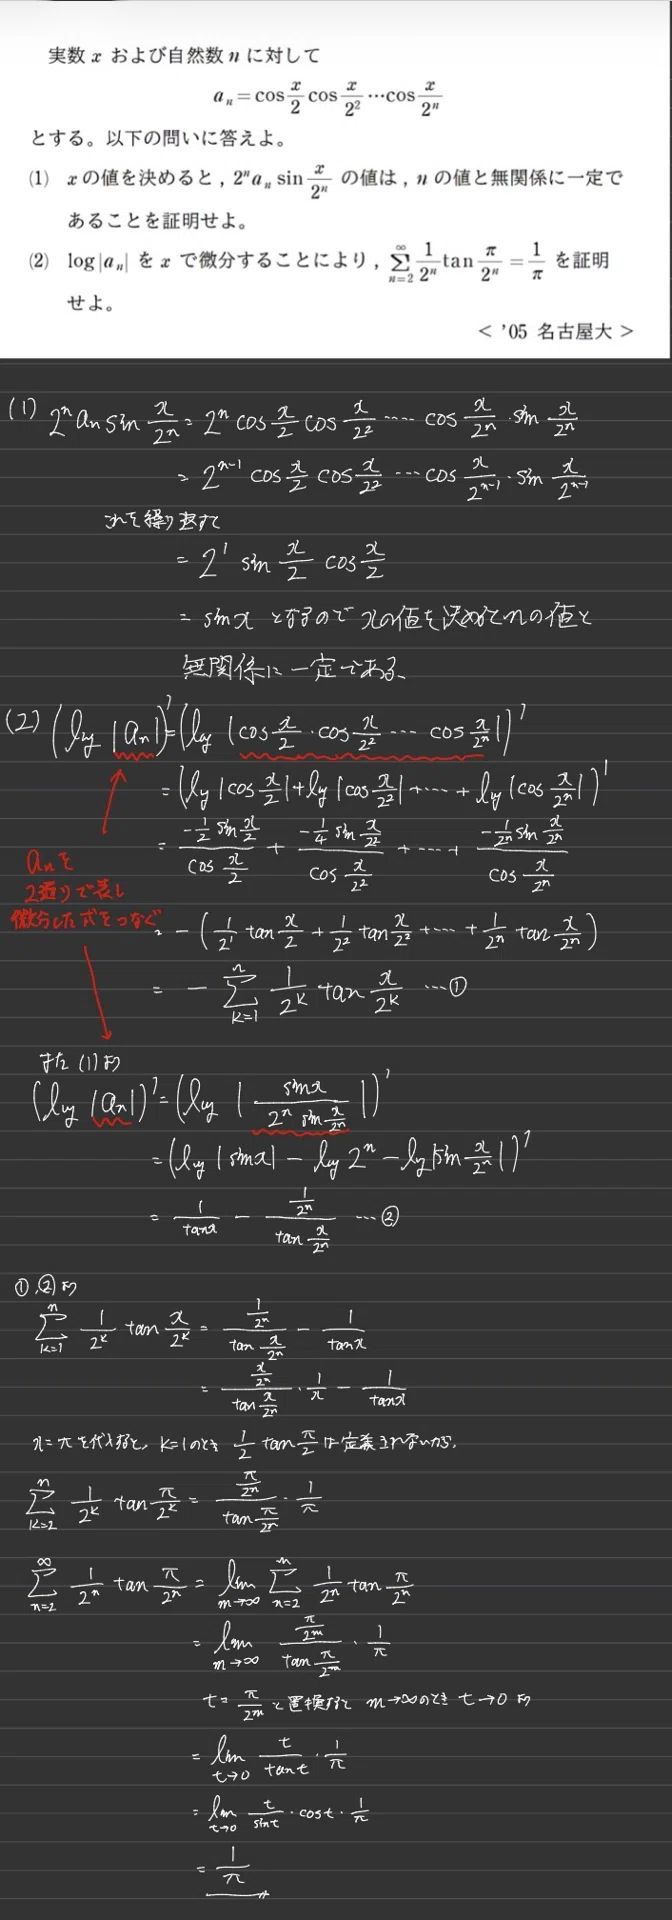 実数 x および自然数 n に対して
a_n = cos x/2 cos x/2² … cos x/2ⁿ
とする。以下の問いに答えよ。
(1) x の値を決めると,2ⁿ a_n sin x/2ⁿ の値は,n の値と無関係に一定で
あることを証明せよ。
(2) log|a_n| を x で微分することにより,∑_{n=2}^{∞} 1/2ⁿ tan π/2ⁿ = 1/π を証明
せよ。
< '05 名古屋大 >
(1) 2ⁿ an sin x/2ⁿ = 2ⁿ cos x/2 cos x/2² …… cos x/2ⁿ · sin x/2ⁿ
= 2ⁿ⁻¹ cos x/2 cos x/2² … cos x/2ⁿ⁻¹ · sin x/2ⁿ⁻¹
これを繰り返すと
= 2¹ sin x/2 cos x/2
= sin x となるので xの値を決めるとnの値と
無関係に一定である、
(2) (log |an|)' = (log |cos x/2 · cos x/2² … cos x/2ⁿ|)'
= (log |cos x/2| + log |cos x/2²| + …… + log |cos x/2ⁿ|)'
= (-1/2 sin x/2)/(cos x/2) + (-1/4 sin x/2²)/(cos x/2²) + …… + (-1/2ⁿ sin x/2ⁿ)/(cos x/2ⁿ)
anを
2通りで表し
微分した式をつなぐ
= - (1/2¹ tan x/2 + 1/2² tan x/2² + …… + 1/2ⁿ tan x/2ⁿ)
= - ∑_{k=1}^{n} 1/2ᵏ tan x/2ᵏ …①
また (1)より
(log |an|)' = (log | sin x/(2ⁿ sin x/2ⁿ) |)'
= (log |sin x| - log 2ⁿ - log |sin x/2ⁿ|)'
= 1/tan x - (1/2ⁿ)/(tan x/2ⁿ) …②
①,②より
∑_{k=1}^{n} 1/2ᵏ tan x/2ᵏ = (1/2ⁿ)/(tan x/2ⁿ) - 1/tan x
= (x/2ⁿ)/(tan x/2ⁿ) · 1/x - 1/tan x
x=πを代入すると、k=1のとき 1/2 tan π/2 は定義されないから、
∑_{k=2}^{n} 1/2ᵏ tan π/2ᵏ = (π/2ⁿ)/(tan π/2ⁿ) · 1/π
∑_{n=2}^{∞} 1/2ⁿ tan π/2ⁿ = lim_{m→∞} ∑_{n=2}^{m} 1/2ⁿ tan π/2ⁿ
= lim_{m→∞} (π/2ᵐ)/(tan π/2ᵐ) · 1/π
t = π/2ᵐ と置換すると m→∞のとき t→0 より
= lim_{t→0} t/tan t · 1/π
= lim_{t→0} t/sin t · cos t · 1/π
= 1/π